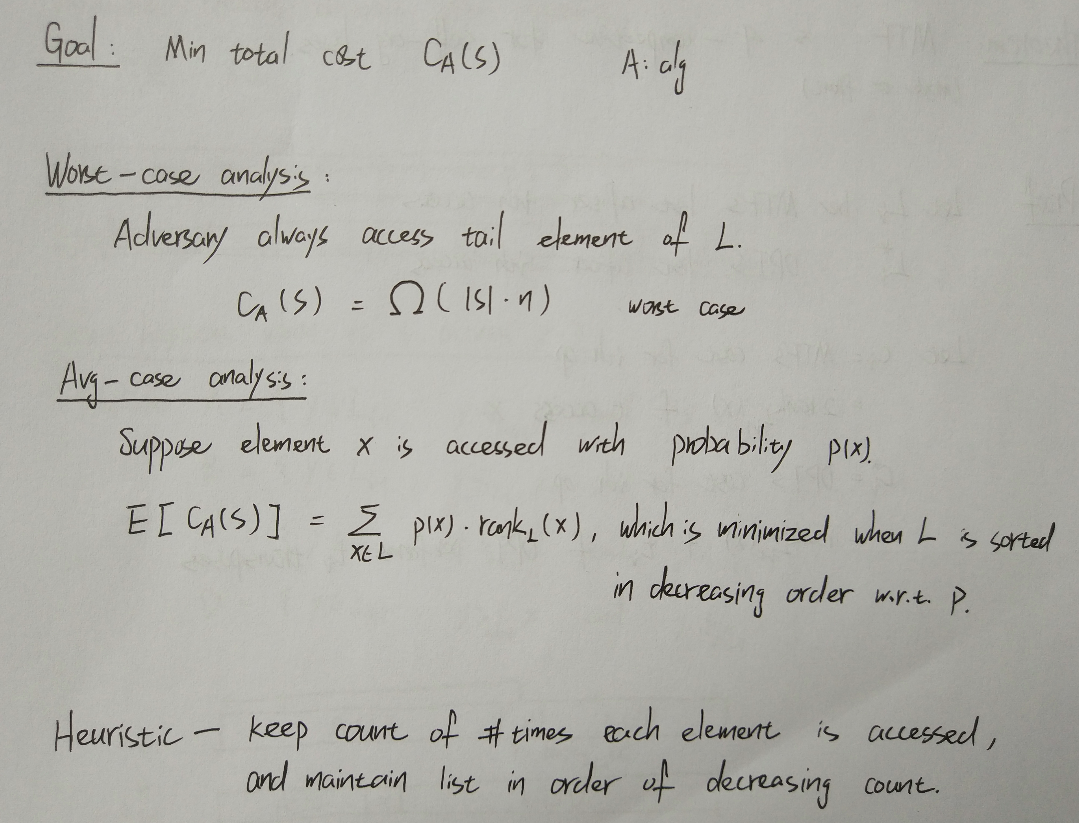 Goal: Min total cost C_A(S) A: alg
Worst-case analysis:
Adversary always access tail element of L.
C_A(S) = Ω(|S|·n) worst case
Avg-case analysis:
Suppose element x is accessed with probability p(x).
E[C_A(S)] = Σ_{x∈L} p(x)·rank_L(x), which is minimized when L is sorted
in decreasing order w.r.t. p.
Heuristic – keep count of # times each element is accessed,
and maintain list in order of decreasing count.